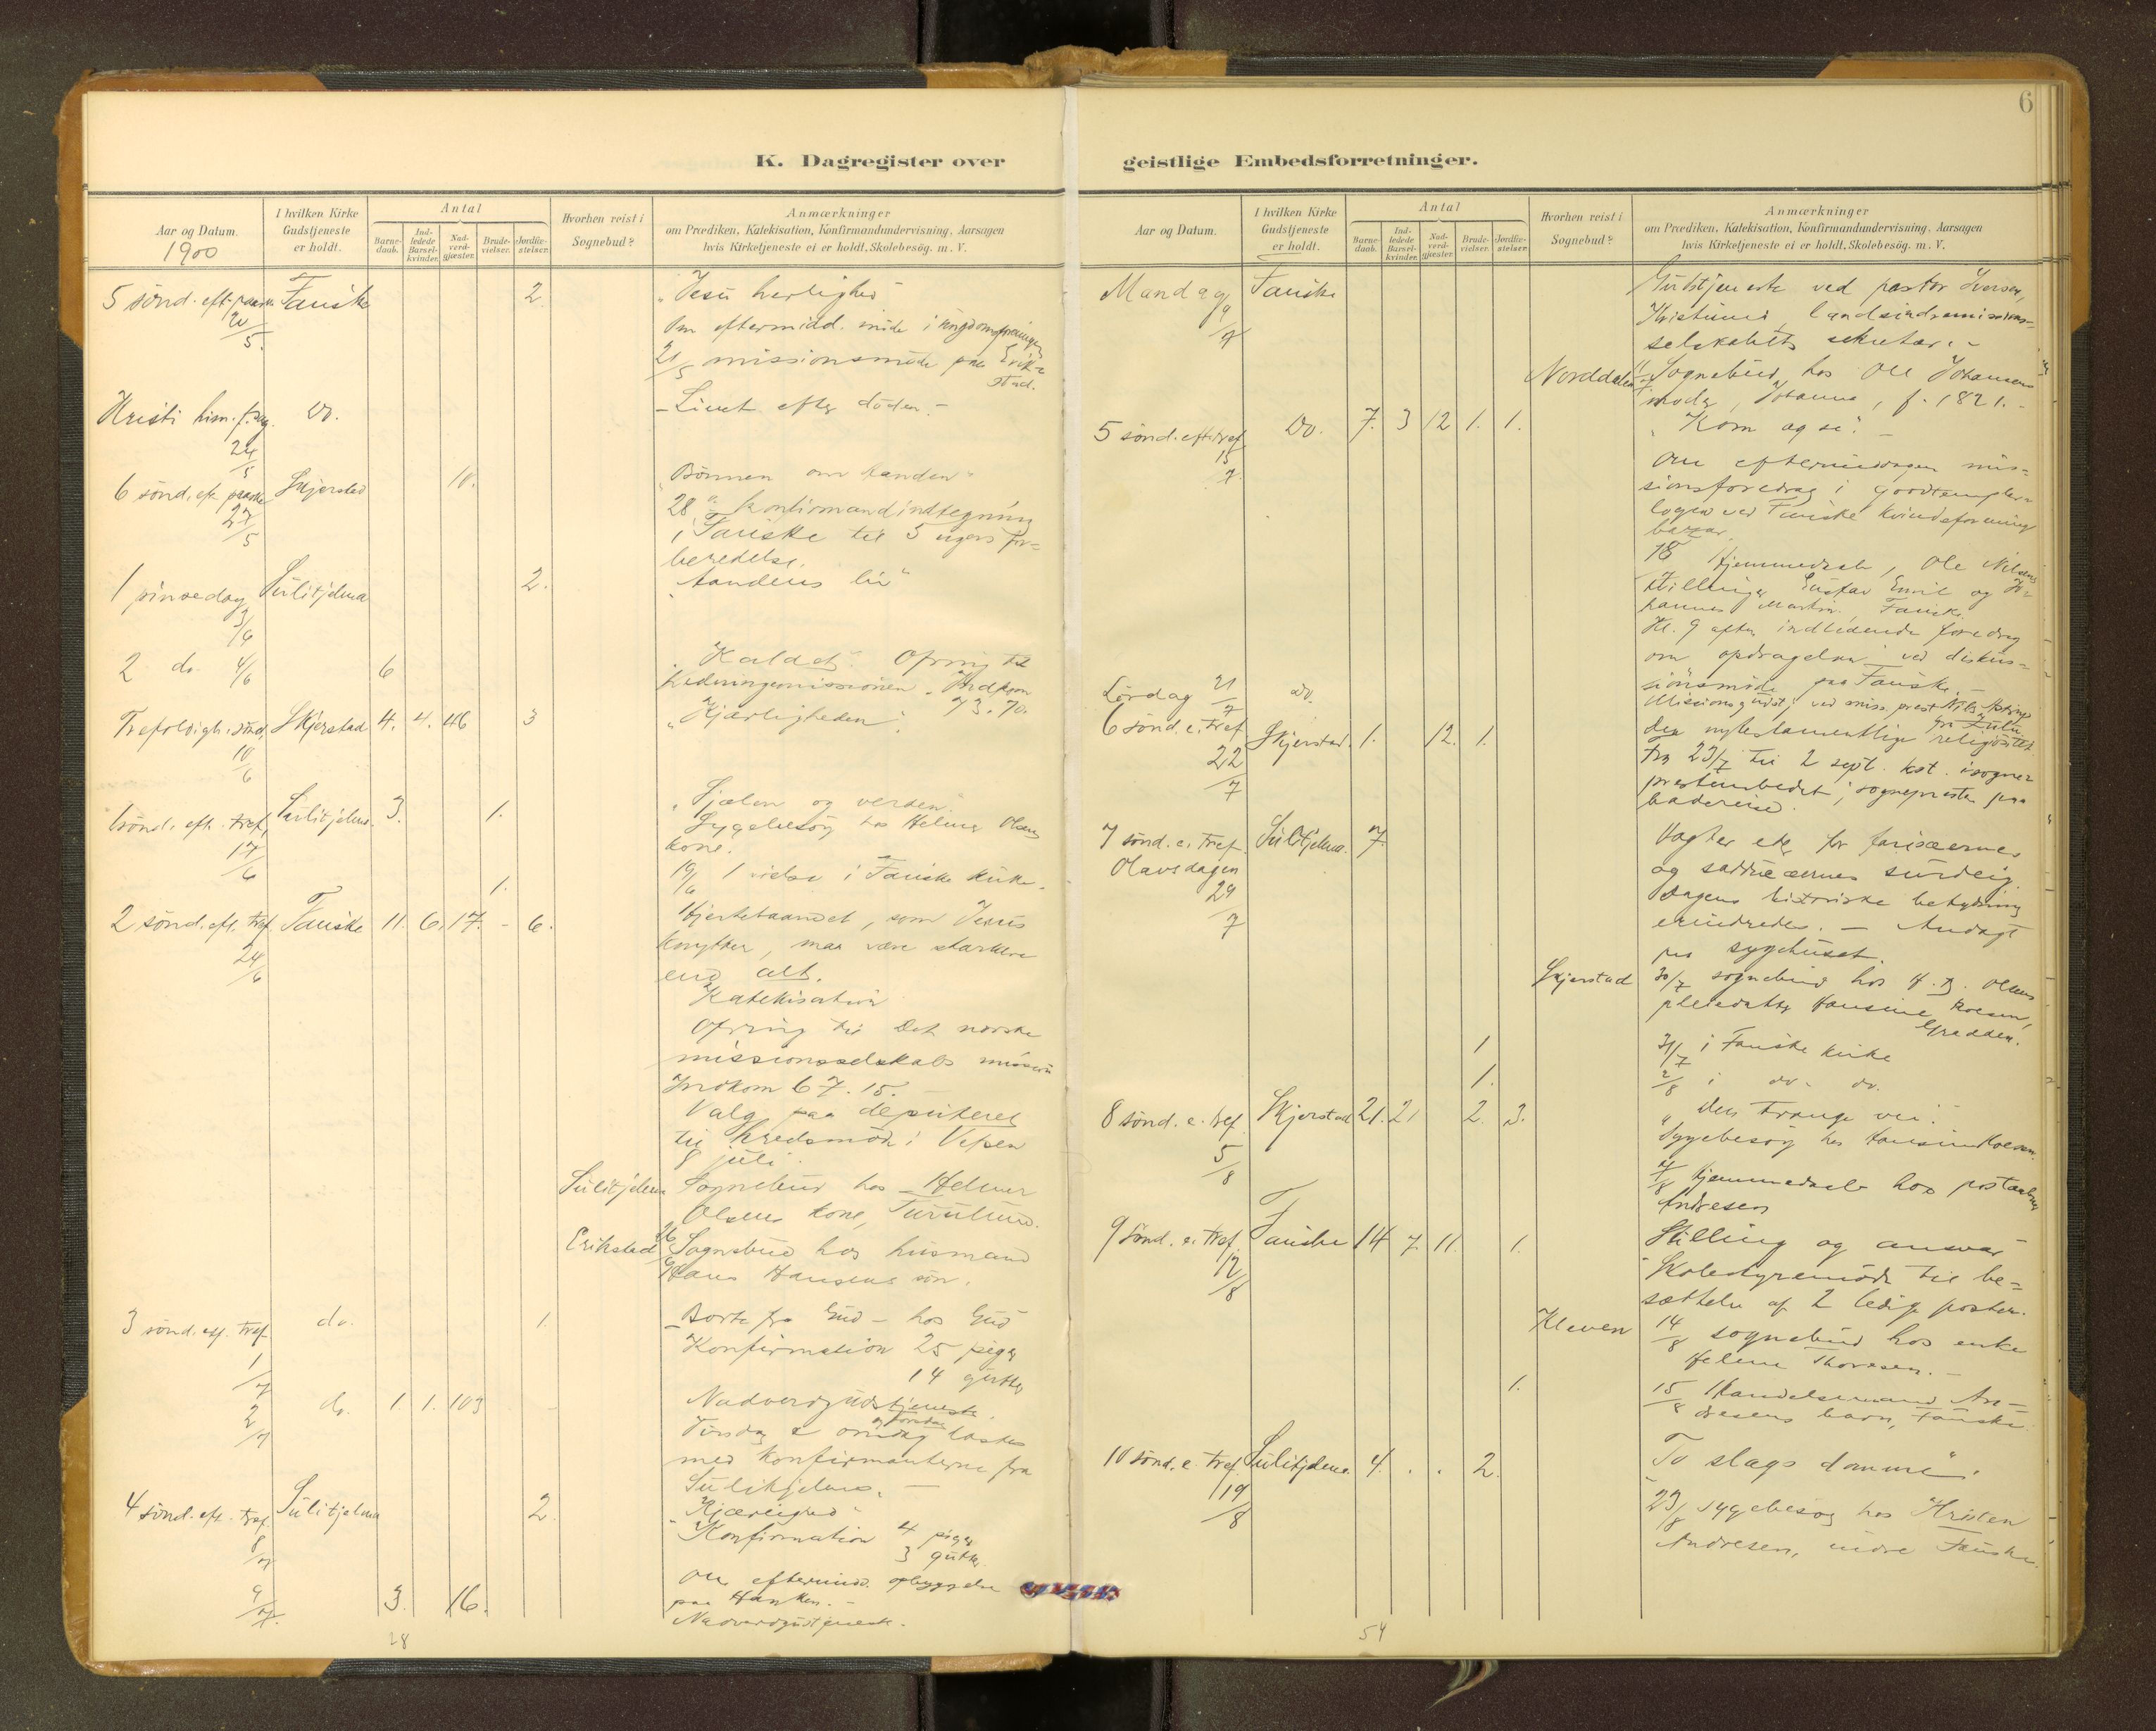 6
K. Dagregister over
geistlige Embedsforretninger.
Aar og Datum.
1900
I hvilken Kirke
Gudstjeneste
er holdt.
Antal
Barne-
daab.
Ind-
ledede
Barsel-
kvinder.
Nad-
verd-
gjæster.
Brude-
vielser.
Jordfæ-
stelser.
Hvorhen reist i
Sognebud?
Anmærkninger
om Prædiken, Katekisation, Konfirmandundervisning, Aarsagen
hvis Kirketjeneste ei er holdt. Skolebesög. m. V.
5 sönd. eft. paaske Fauske 2 "Jesu herlighed"
20/5. Om eftermidd. möde i ungdomsforeningen
21/5 missionsmöde paa Erik-
stad.
Kristi him.f.dag. Do. Livet efter döden.
24/5
6 sönd. eft. paaske Skjerstad 10. "Bönnen om aanden"
27/5 28 konfirmandindtegning
i Fauske til 5 ugers for=
beredelse.
1 pinsedag Sulitjelma 2. "Aandens liv"
3/6
2 do. 4/6 6 "Kaldet". Ofring til
hedningemissionen. Indkom
73.70.
Trefoldigh. sönd. Skjerstad 4. 4. 46 3 "Kjærligheden".
10/6
1 sönd. eft. tref. Sulitjelma. 3. 1. "Sjælen og verden".
17/6 Sygebesög hos Helmer Olsens
kone.
1. 19/6 1 vielse i Fauske kirke.
2 sönd. eft. tref. Fauske 11. 6. 17. - 6. Hjertebaandet, som Jesus
24/6 knytter, maa være stærkere
end alt.
Katekisation
Ofring til Det norske
missionsselskabs mission
Indkom 67.15.
Valg paa deputeret
til kredsmöde i Vefsen
8 juli.
Sulitjelma Sognebud hos Helmer
Olsens kone, Furulund.
Erikstad 26/6 Sognebud hos husmand
Hans Hansens sön.
3 sönd. eft. tref. do. 1. Borte fra Gud - hos Gud
1/7 Konfirmation 25 piger
14 gutter
2/7 do. 1 1. 103 Nadverdgudstjeneste.
Tirsdag & onsdag og torsdag læstes
med konfirmanterne fra
Sulitjelma.
4 sönd. eft. tref. Sulitjelma 2. "Kjærlighed"
8/7 Konfirmation 4 piger
3 gutter.
Om eftermidd. opbyggelse
paa Hanken.
9/7. 3. 16. Nadverdgudstjeneste.
28
Aar og Datum.
I hvilken Kirke
Gudstjeneste
er holdt.
Antal
Barne-
daab.
Ind-
ledede
Barsel-
kvinder.
Nad-
verd-
gjæster.
Brude-
vielser.
Jordfæ-
stelser.
Hvorhen reist i
Sognebud?
Anmærkninger
om Prædiken, Katekisation, Konfirmandundervisning, Aarsagen
hvis Kirketjeneste ei er holdt. Skolebesög. m. V.
Mandag 9/7 Fauske Gudstjeneste ved pastor Iversen,
Kristiania, landsindremissions-
selskabets sekretær.
Norddalen 11/7 Sognebud hos Ole Johansens
moder, Johanna, f. 1821.
5 sönd. eft. tref. Do. 7. 3 12 1. 1. "Kom og se".
15/7 Om eftermiddagen mis=
sionsforedrag i goodtempler=
logen ved Fauske kvindeforenings
bazar.
18 Hjemmedaab, Ole Nilsens
tvillinger Gustav Emil og Jo=
hannes Martin. Fauske.
Kl. 9 aften indledende foredrag
om opdragelsen ved diskus=
sionsmöde paa Fauske.
Lördag 21/7 do. Missionsgudstj. ved miss.prest Nils
fra Zulu
6 sönd. e. tref. Skjerstad. 1. 12. 1. den nytestamentlige religiösitet
22/7 Fra 23/7 til 2 sept. kst. i sogne=
prestembedet; sognepresten paa
badereise.
7 sönd. e. tref. Sulitjelma. 7. Vogter eder for farisæernes
Olavsdagen og sadducæernes surdeig.
29/7 Dagens historiske betydning
erindredes. - Andagt
paa sygehuset.
Skjerstad 30/7 sognebud hos H. Olsens
pleiedatter Hansine Koesen,
Gradden.
1 31/7 i Fauske kirke
1. 2/8 i do. do.
8 sönd. e. tref. Skjerstad 21. 21 2. 3. "Den trange vei".
5/8 Sygebesög hos Hansine Koesen.
7/8 Hjemmedaab hos postaabner
Andresen
9 sönd. e. tref. Fauske 14 7 11. 1. Stilling og ansvar
12/8 Skolestyremöde til be=
sættelse af 2 ledige poster.
Kleven 14/8 sognebud hos enke
Helene Thoresen.
1. 15/8 Handelsmand An-
dresens barn, Fauske
10 sönd. e. tref. Sulitjelma. 4. . . 2. "To slags domme".
19/8 23/8 sygebesög hos Kristen
Andresen, indre Fauske.
54